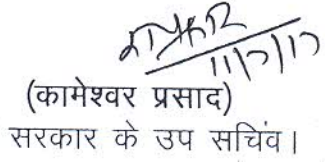 11/7/17
(कामेश्वर प्रसाद)
सरकार के उप सचिव।